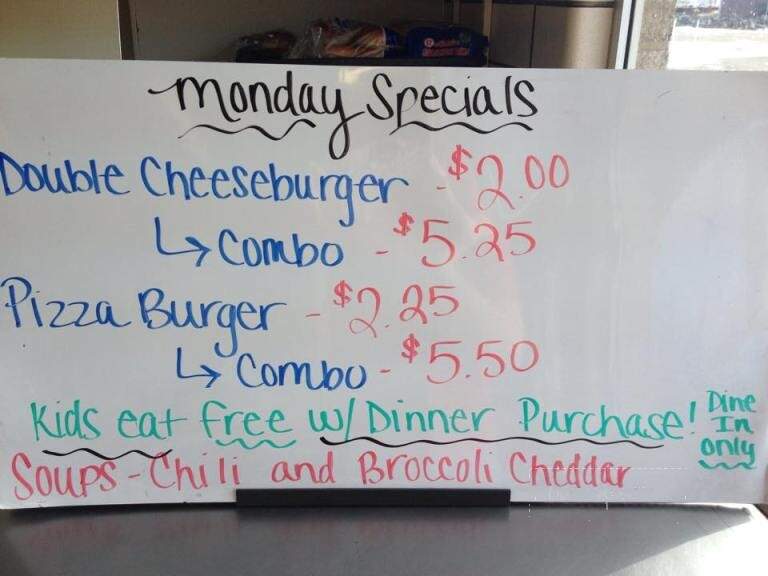 Monday Specials
Double Cheeseburger - $2.00
↳ Combo - $5.25
Pizza Burger - $2.25
↳ Combo - $5.50
Kids eat free w/ Dinner Purchase! Dine In only
Soups - Chili and Broccoli Cheddar